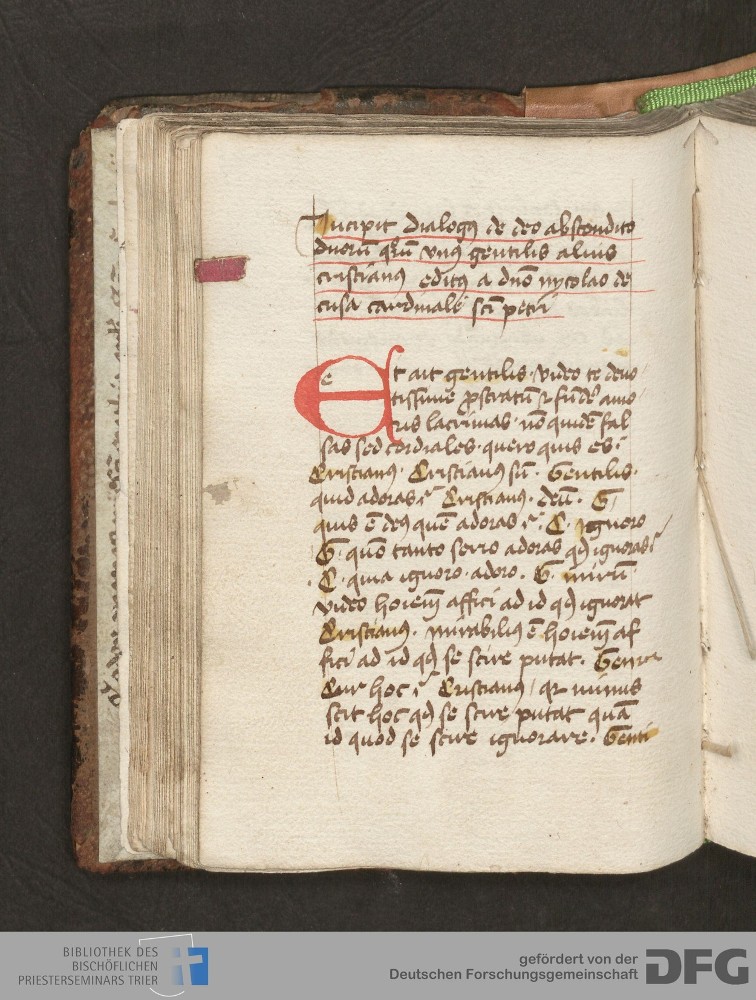 Incipit dialogꝰ de deo abscondito
duorū quoꝝ vnꝰ gentilis alius
cristianꝰ editꝰ a dn̄o nycolao de
cusa cardinale sc̄i petri
Et ait gentilis · video te deuo
tissime ꝓstratū ⁊ fūdē amo
ris lacrimas · nō quidē fal
sas sed cordiales · quero quis es?
Cristianꝰ · Cristianꝰ sū · Gentilis ·
quid adoras? Cristianꝰ · deū · G
quis ē deꝰ quē adoras? C · ignoro
G · quō tanto serio adoras qđ ignoras?
C · quia ignoro · adoro · G · mirū
video hoīem affici ad id qđ ignorat
Cristianꝰ · mirabiliꝰ ē hoīem af
fici ad id qđ se scire putat · Gentil
Cur hoc? Cristianꝰ / qꝛ minus
scit hoc qđ se scire putat quā
id quod se scire ignorare · Genti
BIBLIOTHEK DES
BISCHÖFLICHEN
PRIESTERSEMINARS TRIER
gefördert von der
Deutschen Forschungsgemeinschaft
DFG